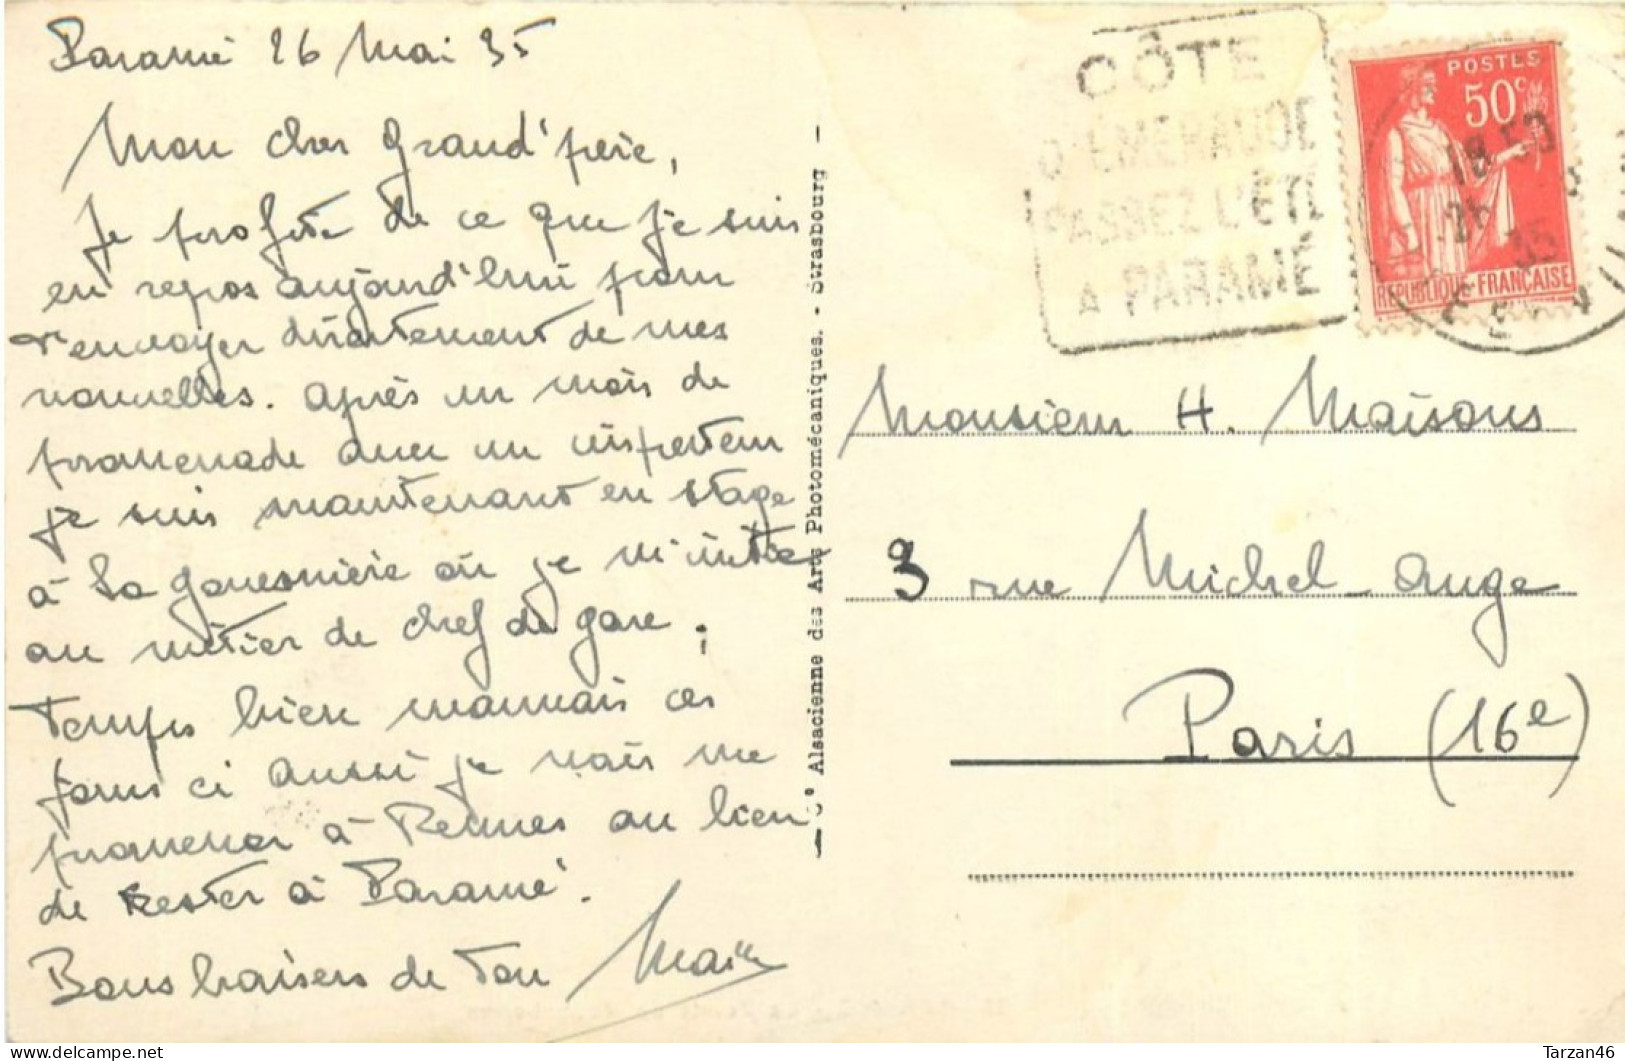 Paramé 26 Mai 35
Mon cher Grand'père,
Je profite de ce que je suis
en repos aujourd'hui pour
t'envoyer directement de mes
nouvelles. Après un mois de
promenade avec un inspecteur
je suis maintenant en stage
à La Gouesnière où je m'initie
au métier de chef de gare.
Temps bien mauvais ces
jours ci aussi je vais me
promener à Rennes au lieu
de rester à Paramé.
Bons baisers de ton
Cie Alsacienne des Arts Photomécaniques. - Strasbourg
CÔTE
D'ÉMERAUDE
PASSEZ L'ÉTÉ
A PARAMÉ
POSTES
50c
REPUBLIQUE FRANÇAISE
18 50
26
35
Monsieur H. Maisons
3 rue Michel-Ange
Paris (16e)
delcampe.net
Tarzan46